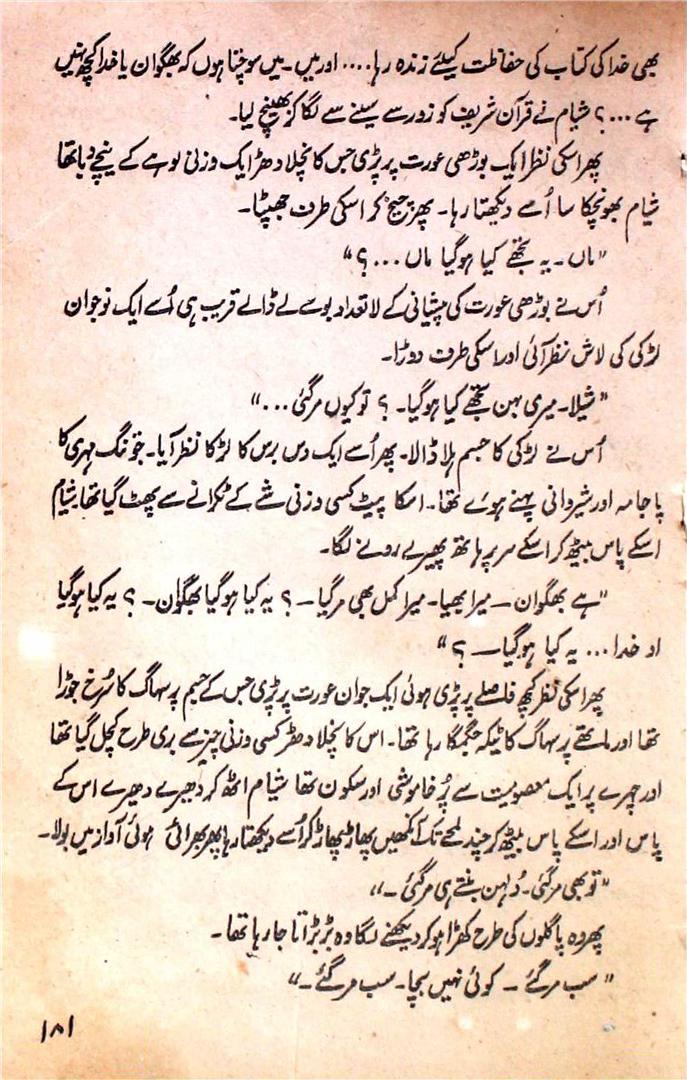 بھی خدا کی کتاب کی حفاظت کیلئے زندہ رہا.... اور میں۔ میں سوچتا ہوں کہ بھگوان یا خدا کچھ نہیں
ہے...؟ شیام نے قرآن شریف کو زور سے سینے سے لگا کر بھینچ لیا۔
پھر اسکی نظر ایک بوڑھی عورت پر پڑی جس کا نچلا دھڑ ایک وزنی لوہے کے نیچے دبا تھا
شیام بھونچکا سا اُسے دیکھتا رہا۔ پھر چیخ کر اسکی طرف جھپٹا۔
"ماں۔ یہ تجھے کیا ہو گیا ماں...؟"
اُس نے بوڑھی عورت کی پیشانی کے لاتعداد بوسے لے ڈالے قریب ہی اُسے ایک نوجوان
لڑکی کی لاش نظر آئی اور اسکی طرف دوڑا۔
"شیلا۔ میری بہن تجھے کیا ہو گیا۔ ؟ تو کیوں مر گئی..."
اُس نے لڑکی کا جسم ہلا ڈالا۔ پھر اُسے ایک دس برس کا لڑکا نظر آیا۔ جو تنگ مہری کا
پاجامہ اور شیروانی پہنے ہوئے تھا۔ اسکا پیٹ کسی وزنی شے کے ٹکرانے سے پھٹ گیا تھا۔ شیام
اسکے پاس بیٹھ کر اسکے سر پر ہاتھ پھیرے رونے لگا۔
"ہے بھگوان — میرا بھیا۔ میرا کمل بھی مر گیا — ؟ یہ کیا ہو گیا بھگوان۔ ؟ یہ کیا ہو گیا
او خدا... یہ کیا ہو گیا — ؟"
پھر اسکی نظر کچھ فاصلے پر پڑی ہوئی ایک جوان عورت پر پڑی جس کے جسم پر سہاگ کا سُرخ جوڑا
تھا اور ماتھے پر سہاگ کا ٹیکہ جگمگا رہا تھا۔ اس کا نچلا دھڑ کسی وزنی چیز سے بری طرح کچل گیا تھا
اور چہرے پر ایک معصومیت سے پُر خاموشی اور سکون تھا شیام اٹھ کر دھیرے دھیرے اس کے
پاس اور اسکے پاس بیٹھ کر چند لمحے تک آنکھیں پھاڑ پھاڑ کر اُسے دیکھتا رہا پھر بھرائی ہوئی آواز میں بولا۔
"تو بھی مر گئی۔ دُلہن بنتے ہی مر گئی۔"
پھر وہ پاگلوں کی طرح کھڑا ہو کر دیکھنے لگا وہ بڑبڑاتا جا رہا تھا۔
"سب مر گئے۔ کوئی نہیں بچا۔ سب مر گئے۔"
۱۸۱